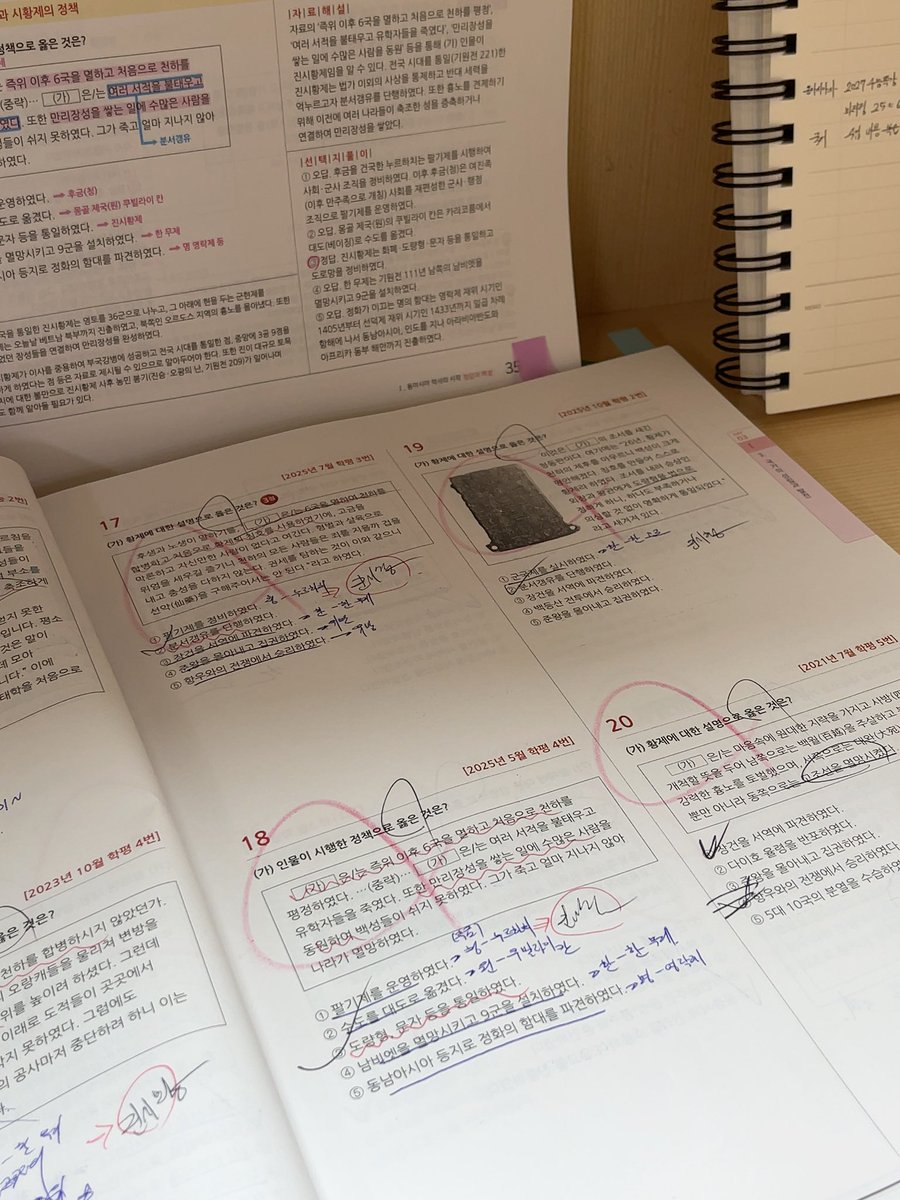 과 시황제의 정책
정책으로 옳은 것은?
는 즉위 이후 6국을 멸하고 처음으로 천하를
(중략)… (가) 은/는 여러 서적을 불태우고
였다. 또한 만리장성을 쌓는 일에 수많은 사람을
들이 쉬지 못하였다. 그가 죽고 얼마 지나지 않아
하였다.
분서갱유
운영하였다. → 후금(청)
도로 옮겼다. → 몽골 제국(원) 쿠빌라이 칸
문자 등을 통일하였다. → 진시황제
멸망시키고 9군을 설치하였다. → 한 무제
시아 등지로 정화의 함대를 파견하였다. → 명 영락제 등
|자|료|해|설|
자료의 '즉위 이후 6국을 멸하고 처음으로 천하를 평정',
'여러 서적을 불태우고 유학자들을 죽였다', '만리장성을
쌓는 일에 수많은 사람을 동원' 등을 통해 (가) 인물이
진시황제임을 알 수 있다. 전국 시대를 통일(기원전 221)한
진시황제는 법가 이외의 사상을 통제하고 반대 세력을
억누르고자 분서갱유를 단행하였다. 또한 흉노를 견제하기
위해 이전에 여러 나라들이 축조한 성을 증축하거나
연결하여 만리장성을 쌓았다.
|선|택|지|풀|이|
① 오답. 후금을 건국한 누르하치는 팔기제를 시행하여
사회·군사 조직을 정비하였다. 이후 후금(청)은 여진족
(이후 만주족으로 개칭) 사회를 재편성한 군사·행정
조직으로 팔기제를 운영하였다.
② 오답. 몽골 제국(원)의 쿠빌라이 칸은 카라코룸에서
대도(베이징)로 수도를 옮겼다.
③ 정답. 진시황제는 화폐·도량형·문자 등을 통일하고
도로망을 정비하였다.
④ 오답. 한 무제는 기원전 111년 남쪽의 남비엣을
멸망시키고 9군을 설치하였다.
⑤ 오답. 정화가 이끄는 명의 함대는 영락제 재위 시기인
1405년부터 선덕제 재위 시기인 1433년까지 일곱 차례
항해에 나서 동남아시아, 인도를 지나 아라비아반도와
아프리카 동부 해안까지 진출하였다.
국을 통일한 진시황제는 영토를 36군으로 나누고, 그 아래에 현을 두는 군현제를
는 오늘날 베트남 북부까지 진출하였고, 북쪽의 오르도스 지역의 흉노를 몰아냈다. 또한
었던 장성들을 연결하여 만리장성을 완성하였다.
시황제가 이사를 중용하여 부국강병에 성공하고 전국 시대를 통일한 점, 중앙에 3공 9경을
하게 하였다는 점 등은 자료로 제시될 수 있으므로 알아두어야 한다. 또한 진이 대규모 토목
치에 대한 불만으로 진시황제 사후 농민 봉기(진승·오광의 난, 기원전 209)가 일어나며
도 함께 알아둘 필요가 있다.
Ⅰ. 동아시아 역사의 시작 정답과 해설 35
[2025년 7월 학평 3번]
17
(가) 황제에 대한 설명으로 옳은 것은? 3점
후생과 노생이 말하기를, " (가) 은/는 6국을 멸하여 천하를
합병하고 처음으로 황제란 칭호를 사용하였기에, 고금을
막론하고 자신만한 사람이 없다고 여긴다. 형벌과 살육으로
위엄을 세우길 즐기니 천하의 모든 사람들은 죄를 지을까 겁을
내고 충성을 다하지 않는다. 권세를 탐하는 것이 이와 같으니
선약(仙藥)을 구해주어서는 안 된다."라고 하였다.
① 팔기제를 정비하였다.
② 분서갱유를 단행하였다.
③ 장건을 서역에 파견하였다.
④ 준왕을 몰아내고 집권하였다.
⑤ 항우와의 전쟁에서 승리하였다.
[2025년 5월 학평 4번]
18
(가) 인물이 시행한 정책으로 옳은 것은?
(가) 은/는 즉위 이후 6국을 멸하고 처음으로 천하를
평정하였다. …(중략)… (가) 은/는 여러 서적을 불태우고
유학자들을 죽였다. 또한 만리장성을 쌓는 일에 수많은 사람을
동원하여 백성들이 쉬지 못하였다. 그가 죽고 얼마 지나지 않아
나라가 멸망하였다.
① 팔기제를 운영하였다. → 청-누르하치
② 수도를 대도로 옮겼다. → 원-쿠빌라이 칸
③ 도량형, 문자 등을 통일하였다.
④ 남비엣을 멸망시키고 9군을 설치하였다. → 한-한 무제
⑤ 동남아시아 등지로 정화의 함대를 파견하였다. → 명-영락제
[2025년 10월 학평 2번]
19
(가) 황제에 대한 설명으로 옳은 것은?
이것은 (가) 의 조서를 새긴
청동판이다. 여기에는 "26년, 황제가
천하의 제후를 아우르니 백성이 크게
평안해졌다. 칭호를 만들어 스스로
황제라 하였다. 조서를 내려 승상인
외장과 왕관에게 도량형을 법으로
정하게 하니, 하나도 부족하거나
의심할 것 없이 명확하게 통일되었다."
라고 새겨져 있다.
① 군국제를 실시하였다.
② 분서갱유를 단행하였다.
③ 장건을 서역에 파견하였다.
④ 백등산 전투에서 승리하였다.
⑤ 준왕을 몰아내고 집권하였다.
[2021년 7월 학평 5번]
20
(가) 황제에 대한 설명으로 옳은 것은?
(가) 은/는 마음속에 원대한 지략을 가지고 사방(四
개척할 뜻을 두어 남쪽으로는 백월(百越)을 주살하고
강력한 흉노를 토벌했으며, 서쪽으로는 대완(大宛)
뿐만 아니라 동쪽으로는 고조선을 멸망시켰다.
① 장건을 서역에 파견하였다.
② 다이호 율령을 반포하였다.
③ 준왕을 몰아내고 집권하였다.
④ 항우와의 전쟁에서 승리하였다.
⑤ 5대 10국의 분열을 수습하였
[2023년 10월 학평 4번]
옳은 것은?
천하를 합병하시지 않았던가.
오랑캐들을 물리쳐 변방을
위를 높이려 하셨다. 그런데
이래로 도적들이 곳곳에서
막지 못하였다. 그럼에도
의 공사마저 중단하려 하니 이는